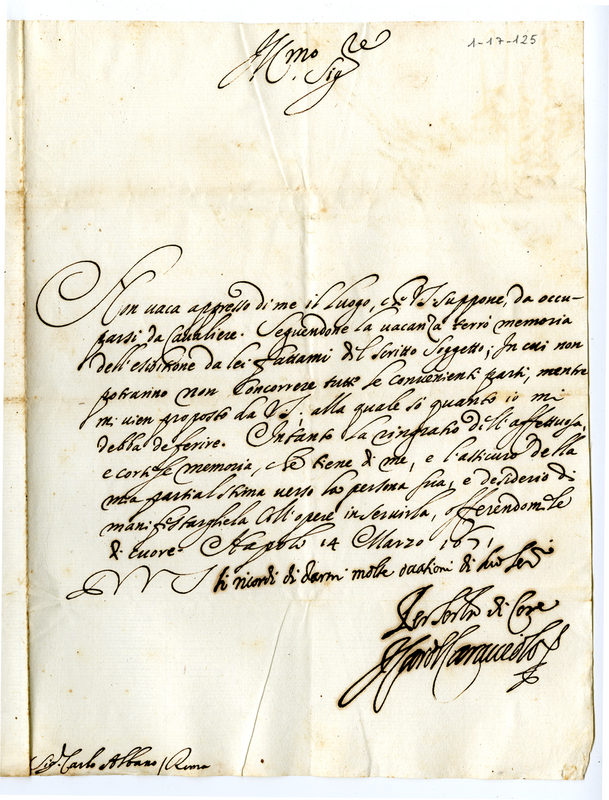 1-17-125
Ill.mo Sig.re
Non vaca appresso di me il luogo, che VS suppone, da occu-
parsi da Cavaliere. Seguendone la vacanza terrò memoria
dell'esibitione da lei fattami del scritto Soggetto; In cui non
potranno non concorrere tutte le convenienti parti, mentre
mi vien proposto da VS, alla quale sò quanto io mi
debba deferire. Intanto la ringratio dell'affettuosa,
e cortese memoria, che tiene di me, e l'assicuro della
mia partial stima verso la persona sua, e desiderio di
manifestarghela coll'opere in servirla, offerendomele
di cuore. Napoli 14 Marzo 1671
VS si ricordi di darmi molte occationi di suo ser.
Per ser.la di Core
Il Card Caracciolo
Sig.r Carlo Albano / Roma